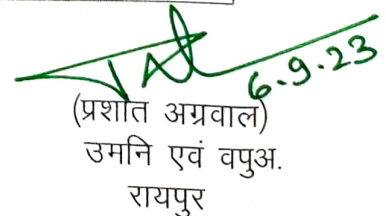 6.9.23
(प्रशांत अग्रवाल)
उमनि एवं वपुअ.
रायपुर